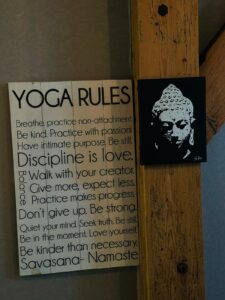 YOGA RULES
Breathe, practice non-attachment.
Be kind. Practice with passion!
Have intimate purpose. Be still.
Discipline is love.
Balance
Walk with your creator.
Give more, expect less.
Practice makes progress.
Don't give up. Be strong.
Quiet your mind. Seek truth. Be still.
Be in the moment. Love yourself.
Be kinder than necessary.
Savasana- Namaste